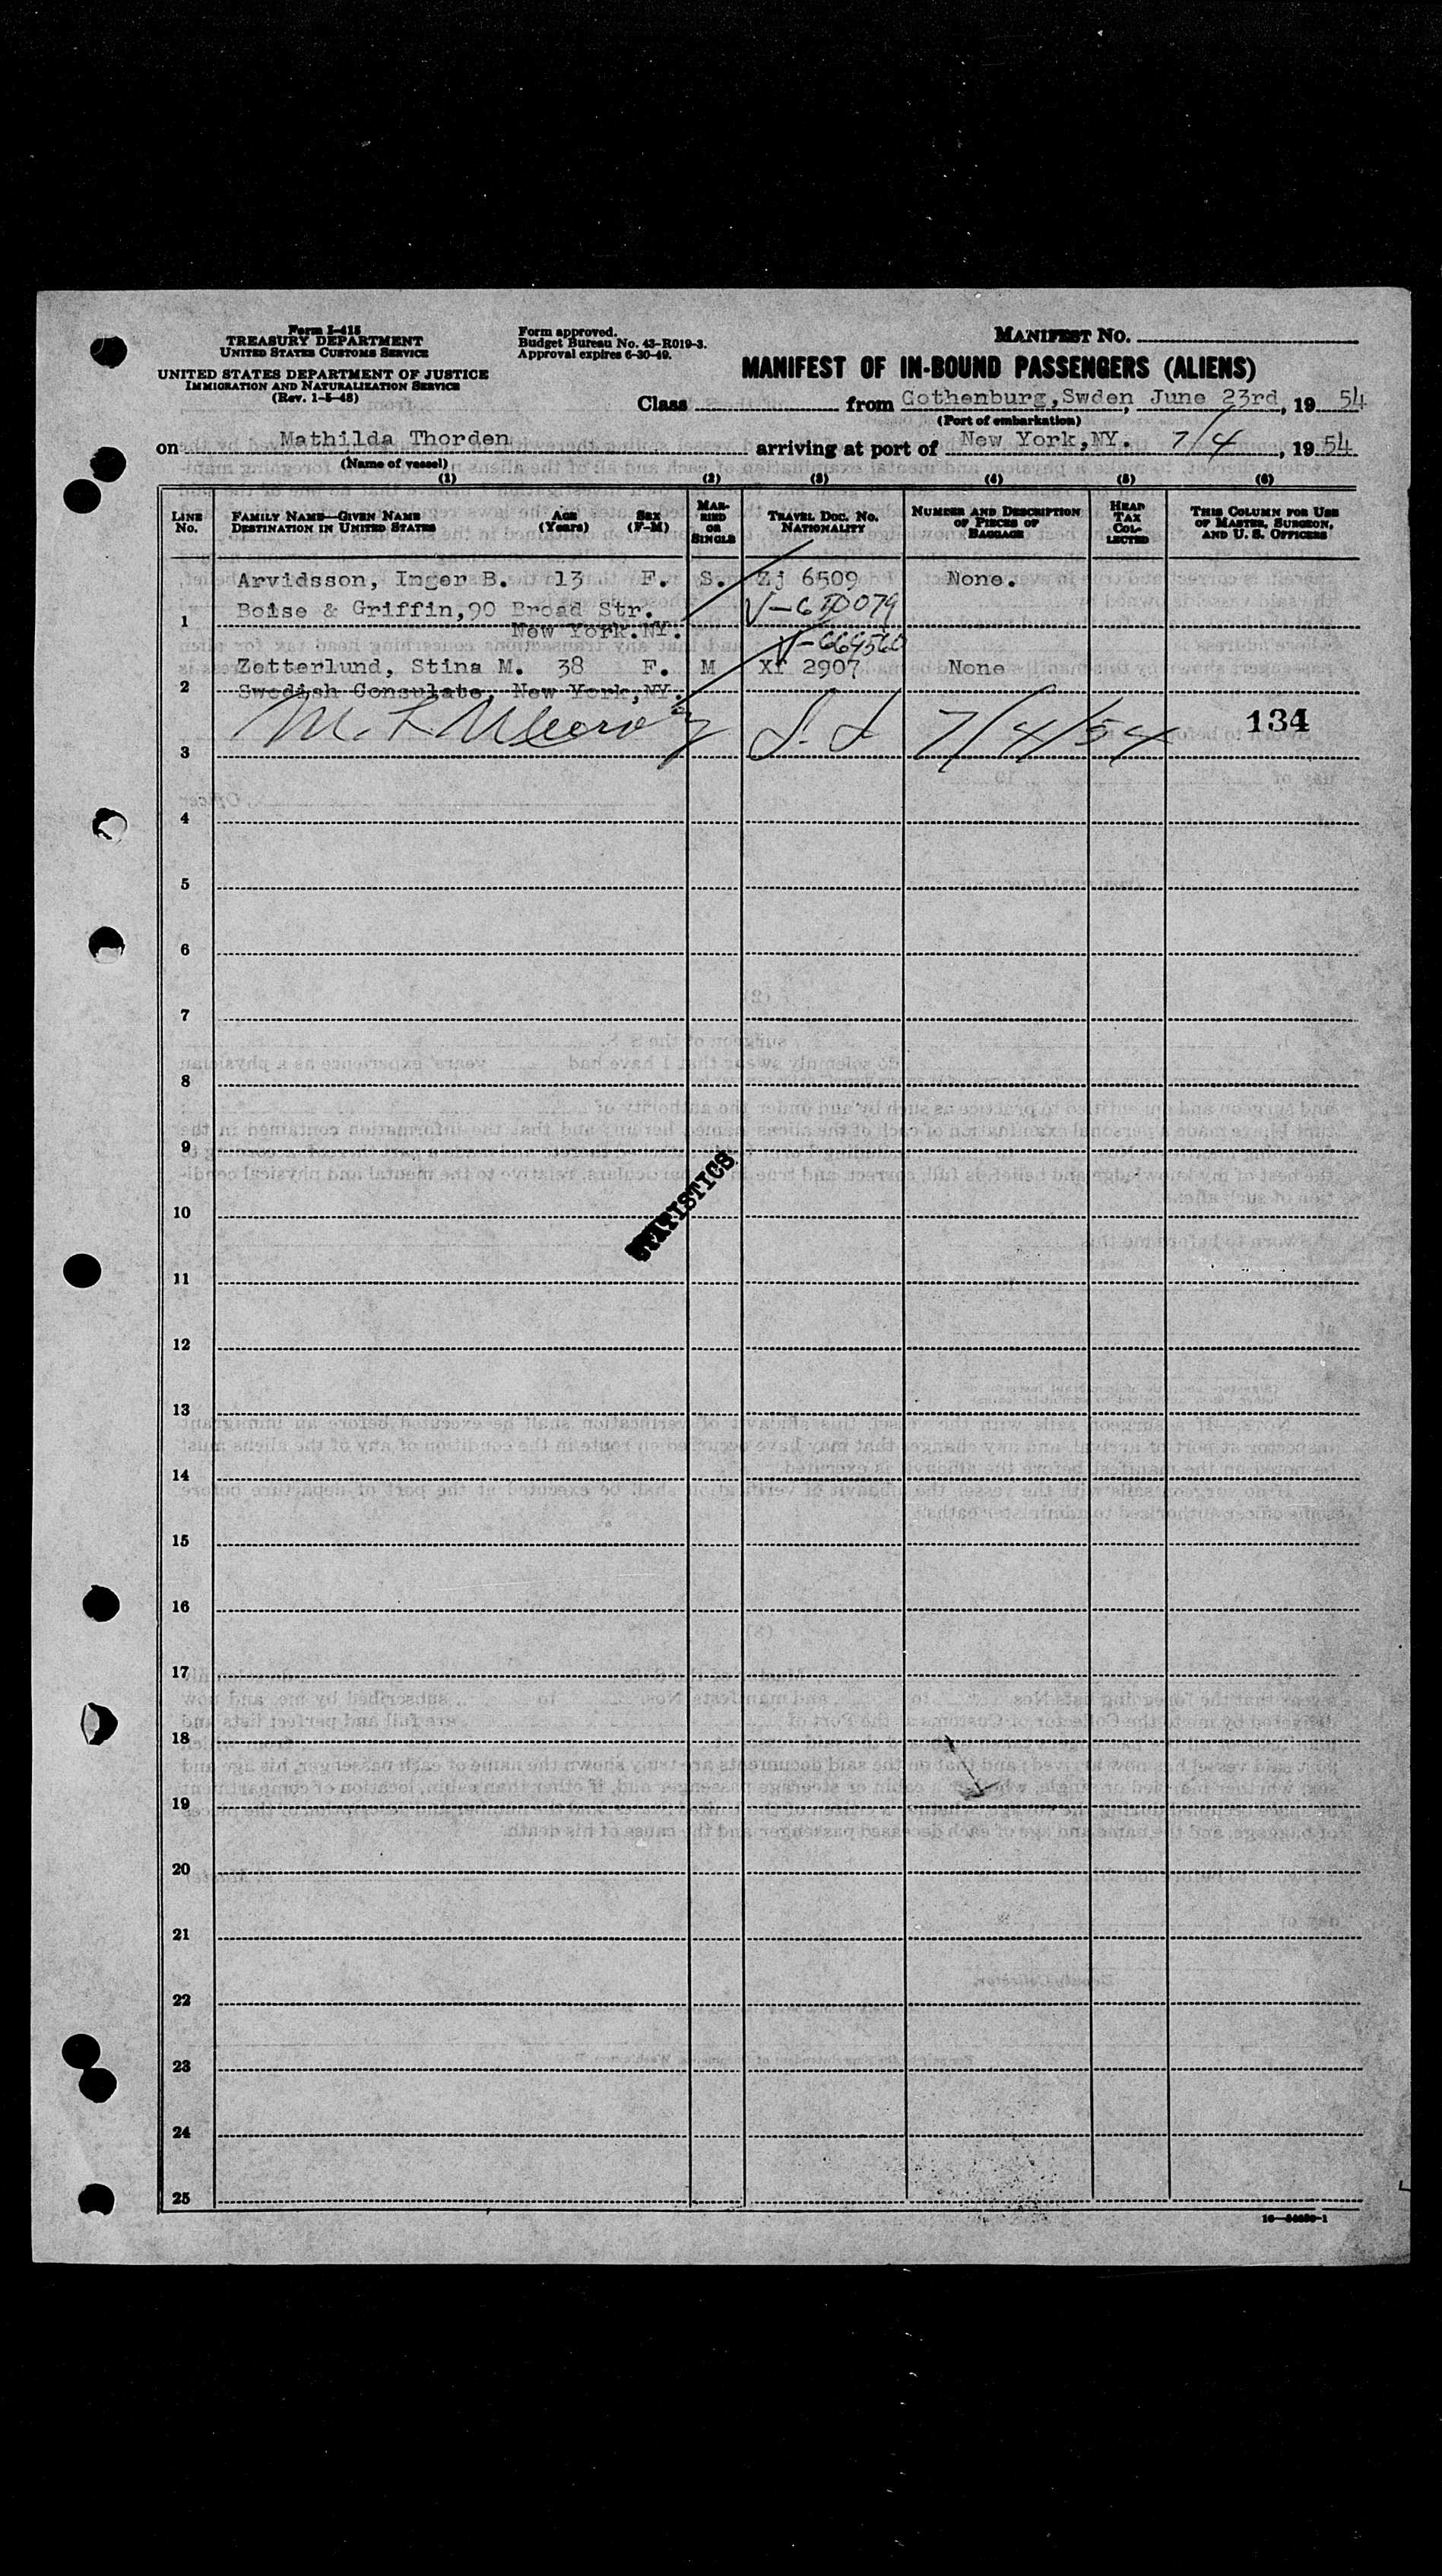 Form I-418
TREASURY DEPARTMENT
UNITED STATES CUSTOMS SERVICE
UNITED STATES DEPARTMENT OF JUSTICE
IMMIGRATION AND NATURALIZATION SERVICE
(Rev. 1-5-48)
Form approved.
Budget Bureau No. 43-R019-3.
Approval expires 6-30-49.
MANIFEST NO.
MANIFEST OF IN-BOUND PASSENGERS (ALIENS)
Class from Gothenburg, Swden, June 23rd, 19 54
(Port of embarkation)
on Mathilda Thorden arriving at port of New York, NY. 7/4, 19 54
(Name of vessel)
(1) (2) (3) (4) (5) (6)
LINE NO. FAMILY NAME—GIVEN NAME DESTINATION IN UNITED STATES AGE (Years) SEX (F-M) MARRIED OR SINGLE TRAVEL DOC. NO. NATIONALITY NUMBER AND DESCRIPTION OF PIECES OF BAGGAGE HEAD TAX COLLECTED THIS COLUMN FOR USE OF MASTER, SURGEON, AND U. S. OFFICERS
Arvidsson, Inger B. 13 F. S. Zj 6509 None.
Boise & Griffin, 90 Broad Str.
1 New York. NY.
V-664560
Zetterlund, Stina M. 38 F. M Xf 2907 None
2 Swedish Consulate, New York, NY.
7/4/54 134
3
4
5
6
7
8
9
STATISTICS
10
11
12
13
14
15
16
17
18
19
20
21
22
23
24
25